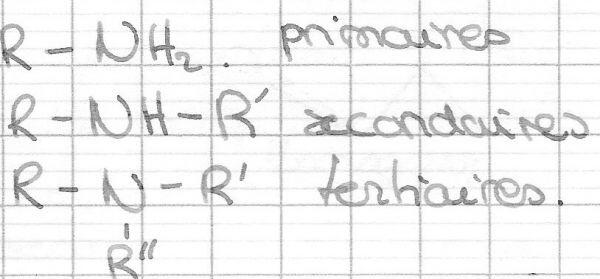 R - NH₂. primaires
R - NH - R' secondaires
R - N - R' tertiaires.
R"